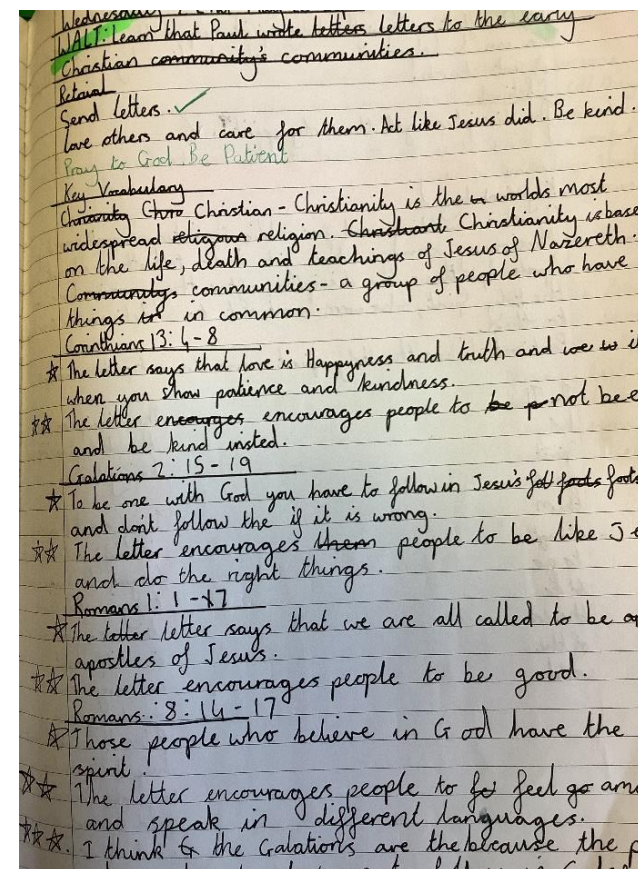 Wednesday
WALT: Learn that Paul wrote letters letters to the early
Christian community's communities.
Retrial
Send letters.
love others and care for them. Act like Jesus did. Be kind.
Pray to God. Be Patient
Key Vocabulary
Christian - Christianity is the worlds most
widespread religous religion. Christiant Christianity is base
on the life, death and teachings of Jesus of Nazereth.
Communitys communities - a group of people who have
things in in common.
Corinthians 13: 4-8
The letter says that love is Happyness and truth and we
when you show patience and kindness.
The letter encourges encourages people to be not be e
and be kind insted.
Galations 2: 15 - 19
To be one with God you have to follow in Jesus's foots
and don't follow the if it is wrong.
The letter encourages them people to be like Je
and do the right things.
Romans 1: 1 - 17
The letter says that we are all called to be
apostles of Jesus.
The letter encourages people to be good.
Romans: 8: 14 - 17
Those people who believe in God have the
spirit.
The letter encourages people to feel am
and speak in different languages.
I think the Galations are the because the